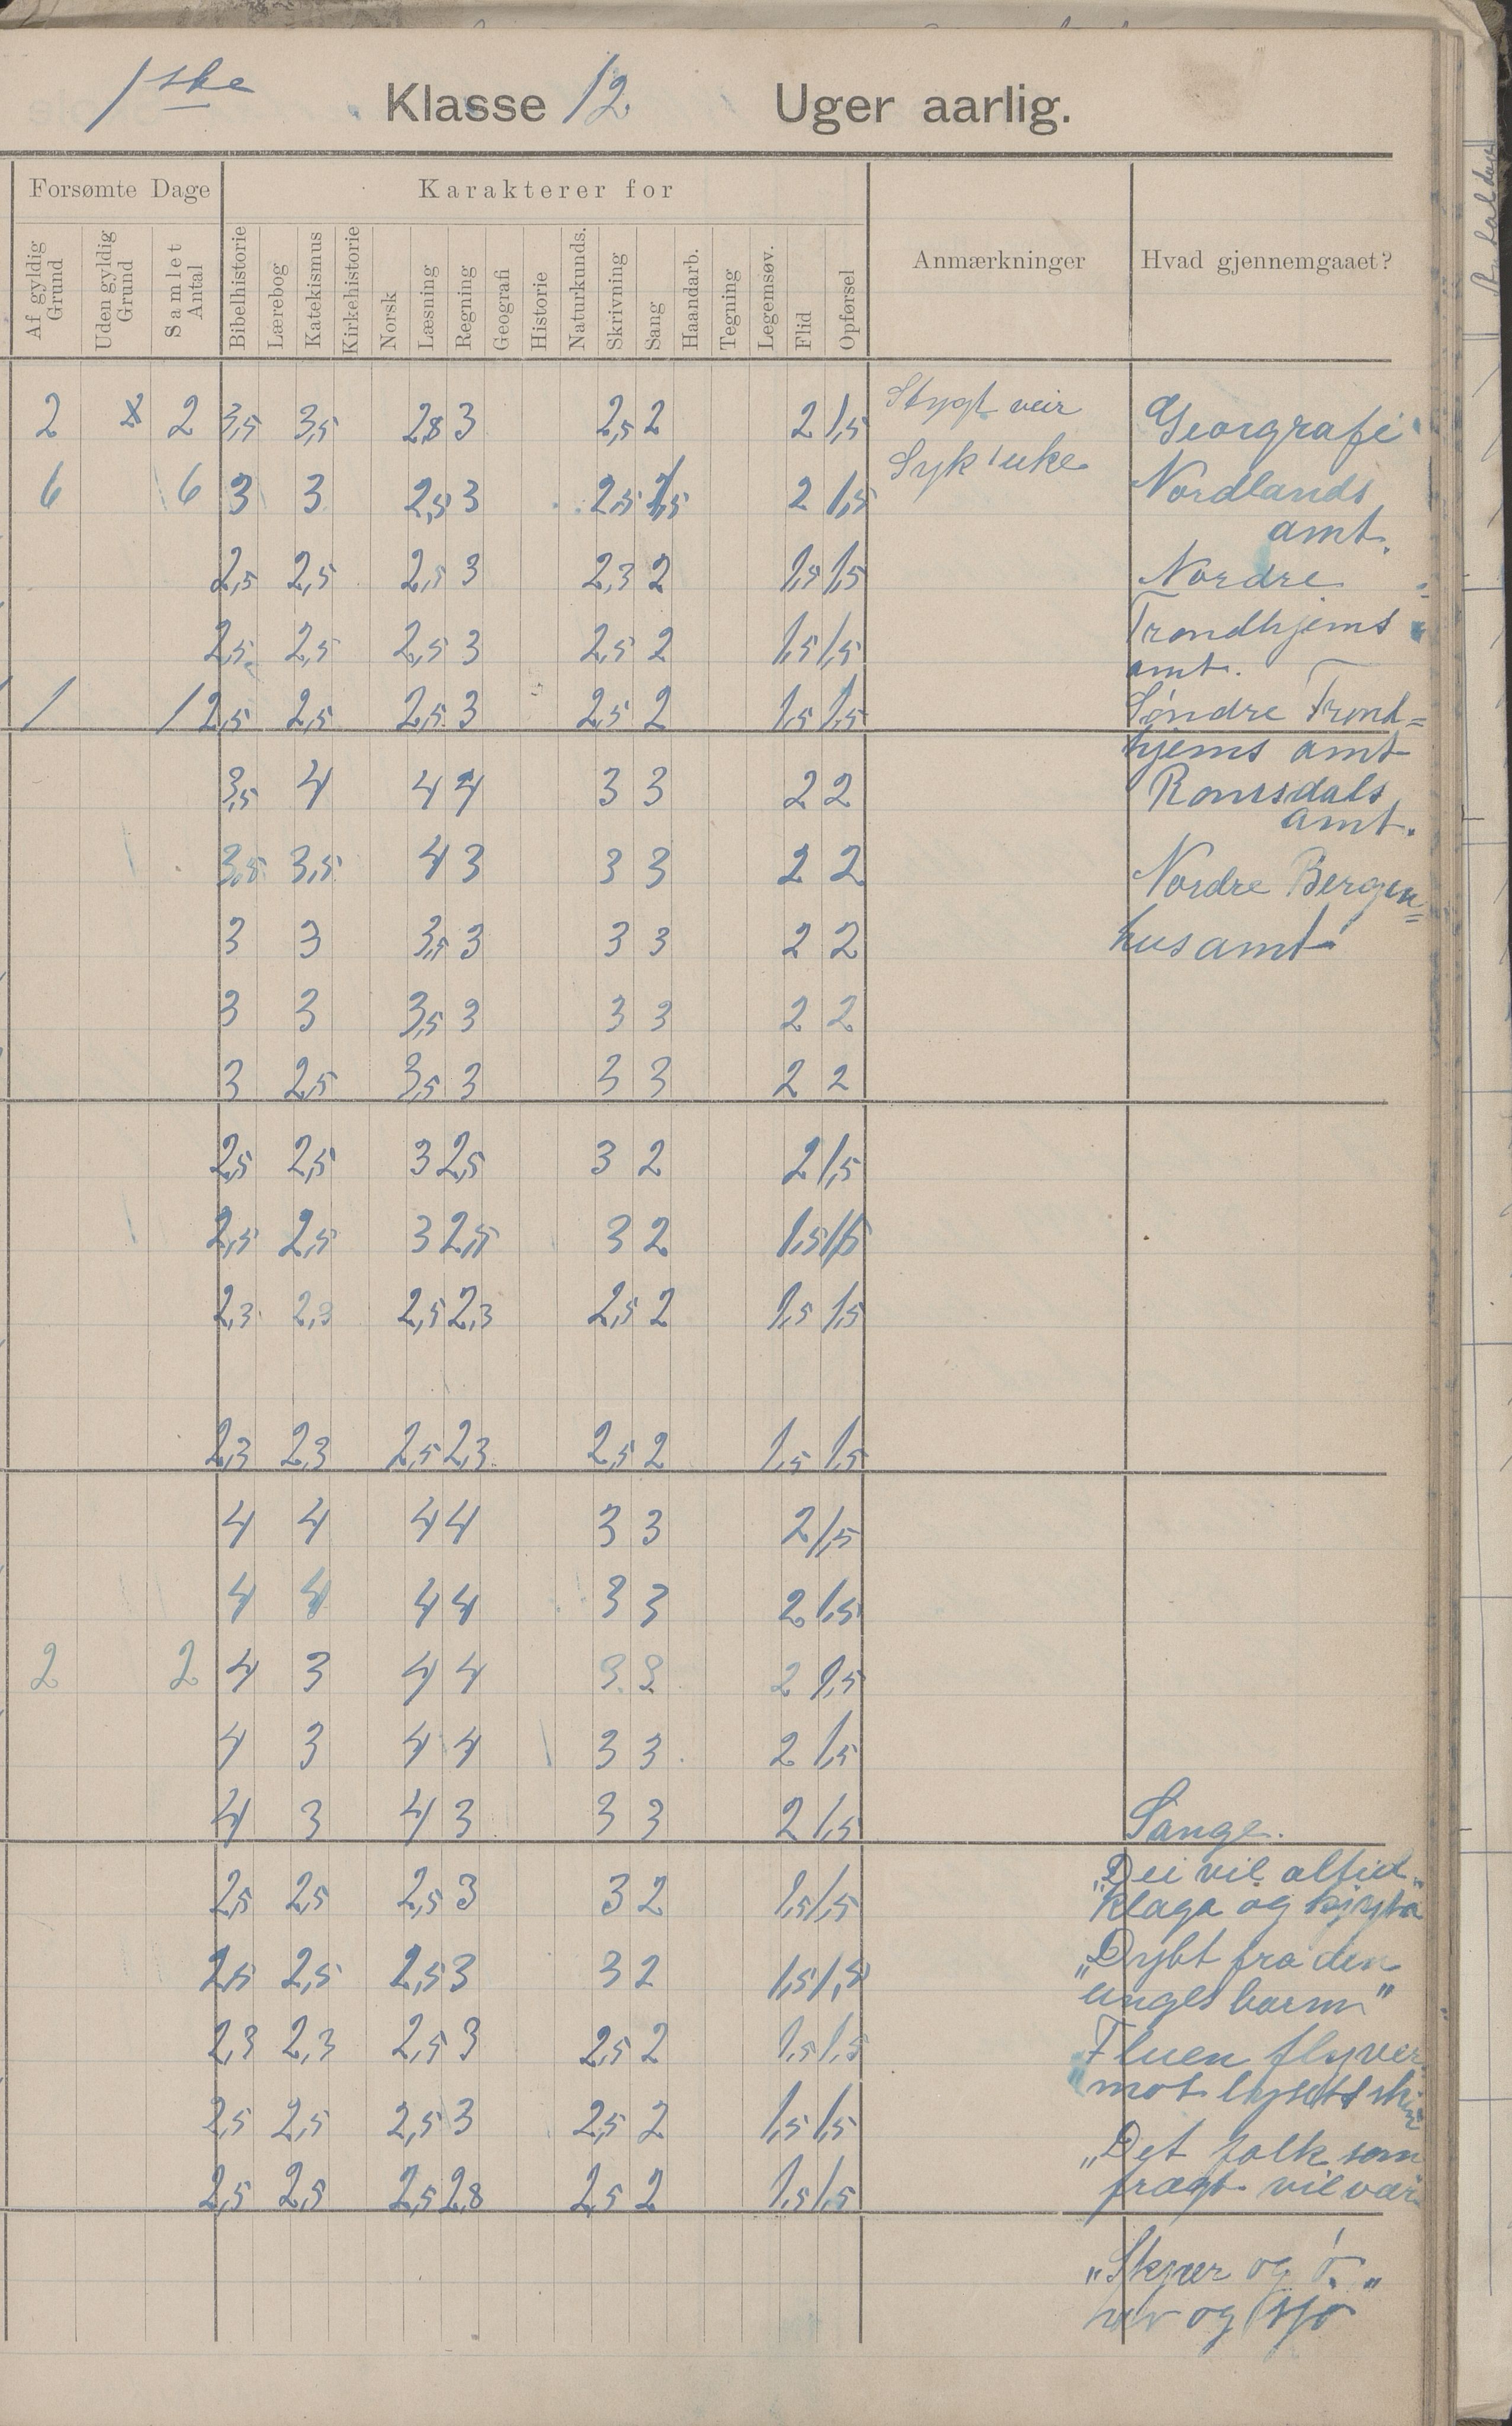 1ste Klasse 12 Uger aarlig.
Forsømte Dage
Karakterer for
Anmærkninger
Hvad gjennemgaaet?
Af gyldig Grund
Uden gyldig Grund
Samlet Antal
Bibelhistorie
Lærebog
Katekismus
Kirkehistorie
Norsk
Læsning
Regning
Geografi
Historie
Naturkunds.
Skrivning
Sang
Haandarb.
Tegning
Legemsøv.
Flid
Opførsel
2 2 3,5 3,5 2,8 3 2,5 2 2 1,5 Stygt veir Georgrafi
6 6 3 3 2,5 3 2,5 1,5 2 1,5 Syk 1 uke Nordlands
amt.
2,5 2,5 2,5 3 2,3 2 1,5 1,5 Nordre
2,5 2,5 2,5 3 2,5 2 1,5 1,5 Trondhjems
amt.
1 1 2,5 2,5 2,5 3 2,5 2 1,5 1,5 Søndre Trond=
hjems amt
3,5 4 4 4 3 3 2 2 Romsdals
amt.
3,5 3,5 4 3 3 3 2 2 Nordre Bergen=
3 3 3,5 3 3 3 2 2 hus amt
3 3 3,5 3 3 3 2 2
3 2,5 3,5 3 3 3 2 2
2,5 2,5 3 2,5 3 2 2 1,5
2,5 2,5 3 2,5 3 2 1,5 1,5
2,3 2,3 2,5 2,3 2,5 2 1,5 1,5
2,3 2,3 2,5 2,3 2,5 2 1,5 1,5
4 4 4 4 3 3 2 1,5
4 4 4 4 3 3 2 1,5
2 2 4 3 4 4 3 3 2 1,5
4 3 4 4 3 3 2 1,5
4 3 4 3 3 3 2 1,5 Sange.
"Dei vil altid
2,5 2,5 2,5 3 3 2 1,5 1,5 klaga og
2,5 2,5 2,5 3 3 2 1,5 1,5 "Dybt fra den
unges barm"
2,3 2,3 2,5 3 2,5 2 1,5 1,5 Fluen flyver
mot lysets
2,5 2,5 2,5 3 2,5 2 1,5 1,5
"Det folk som
2,5 2,5 2,5 2,8 2,5 2 1,5 1,5 frægt vil vær
"Skjær og ø"
hav og sjø